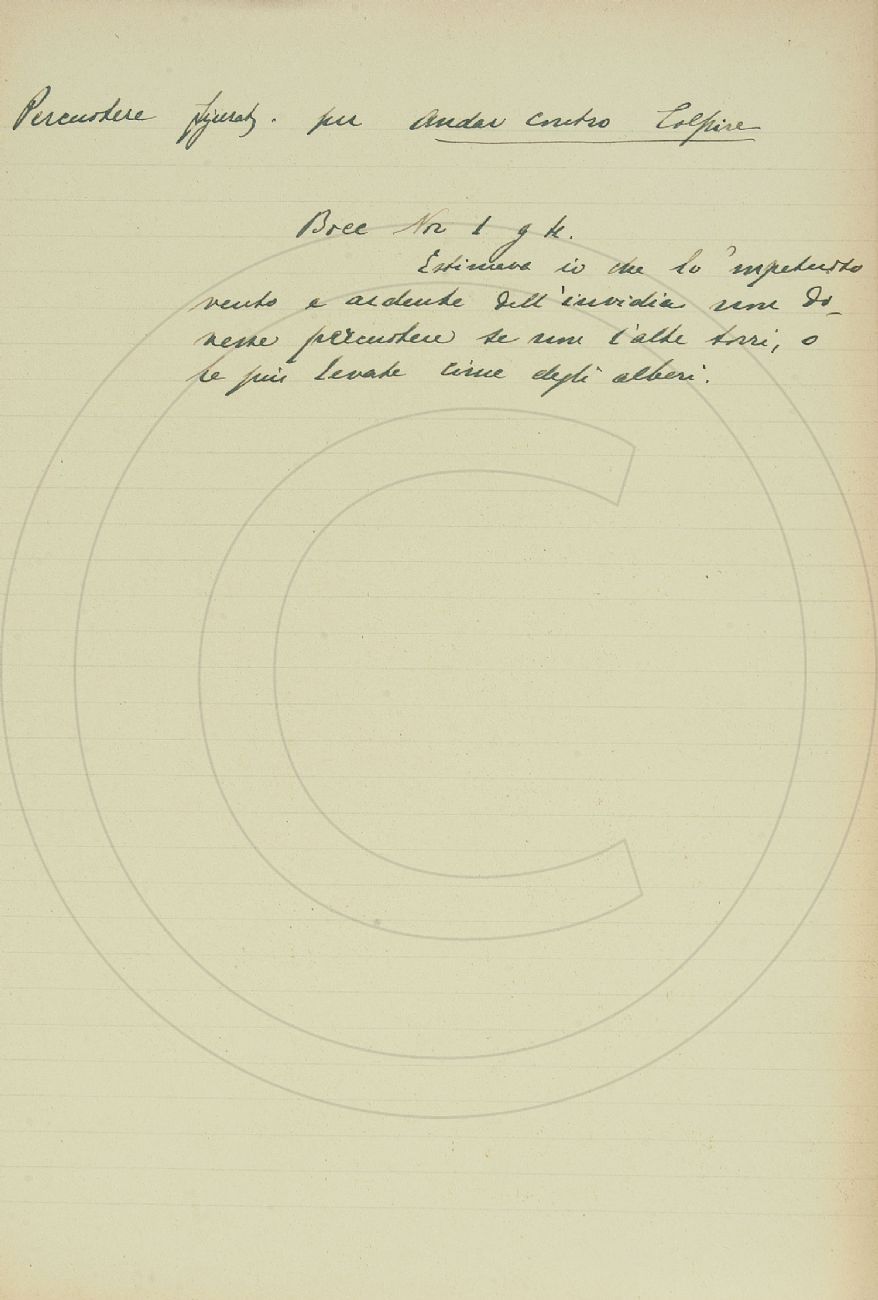 Percuotere figurat. per Andar contro Colpire
Bocc Nov 1 g 4.
Estimava io che lo 'mpetuoso
vento e ardente dell'invidia non do-
vesse percuotere se non l'alte torri, o
le più levate cime degli alberi.